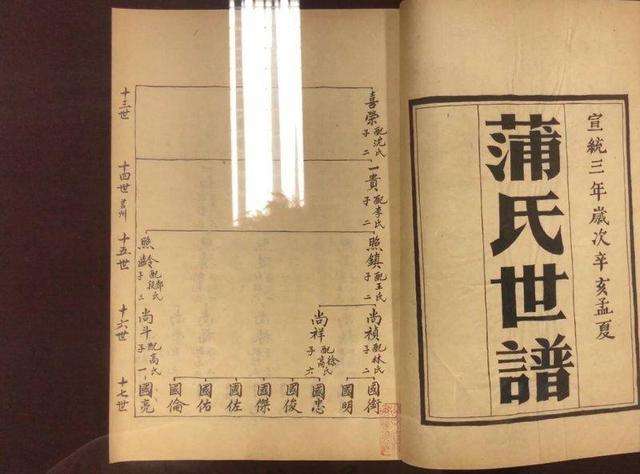 宣統三年歲次辛亥孟夏
蒲氏世譜
十三世
喜榮 配沈氏 子二
十四世
一貴 配李氏 子二
十五世
照鎮 配王氏 子二
照齡 子二
十六世
尚禎 配林氏 子二
尚祥 子六
尚斗 配高氏 子一
十七世
國衛
國明
國忠
國俊
國傑
國佐
國佑
國倫
國亮